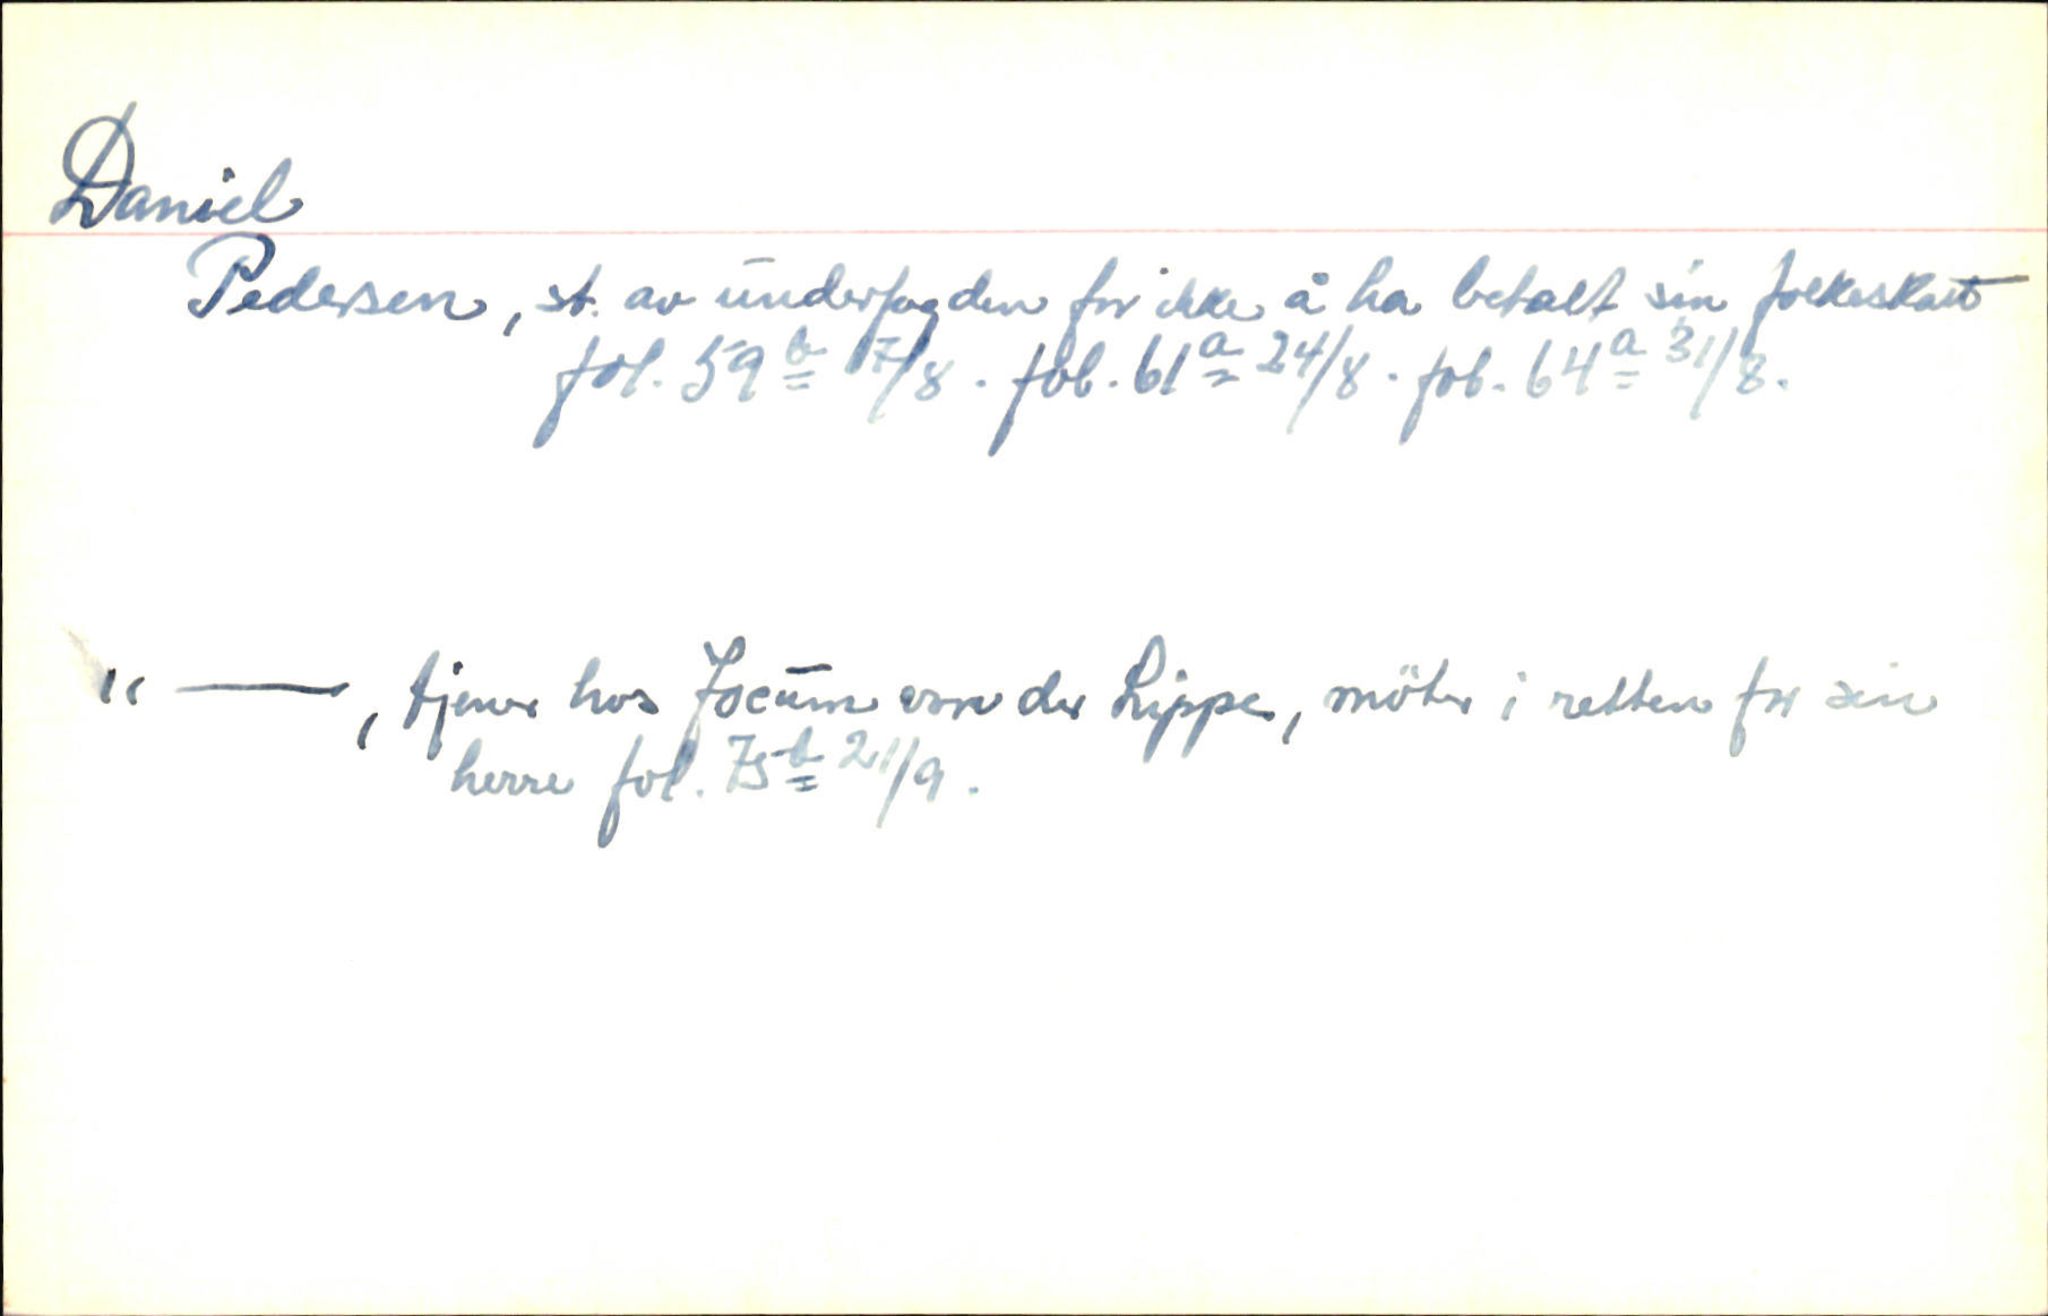 Daniel
Pedersen, st. av underfogden for ikke å ha betalt sin folkeskatt
fol. 59b 17/8. fol. 61a 24/8. fol. 64a 31/8.
" —, tjener hos Jocum von der Lippe, möter i retten for sin
herre fol. 75b 21/9.